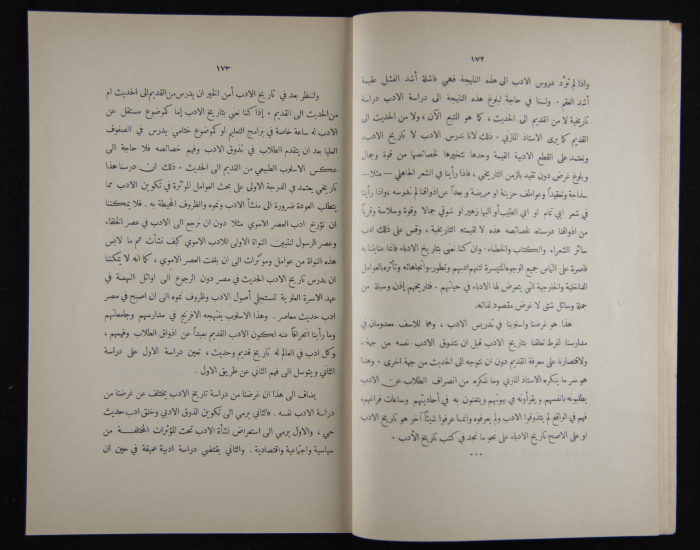 ١٧٢
واذا لم تؤد دروس الادب الى هذه النتيجة فهي فاشلة أشد الفشل عقيمة
أشد العقم . ولسنا في حاجة لبلوغ هذه النتيجة الى دراسة الادب دراسة
تاريخية لا من القديم الى الحديث ، كما هو المتبع الآن ، ولا من الحديث الى
القديم كما يرى الاستاذ المازني . ذلك لاننا ندرس الادب لا تاريخ الادب،
ونعتمد على القطع الادبية القيمة وحدها نتخيرها لخصائصها من قوة وجمال
وبلوغ غرض دون تقيد بالزمن التاريخي ، فاذا رأينا في الشعر الجاهلي – مثلا –
سذاجة وتعقيداً وعواطف حزينة او مريضة وبعداً عن اذواقنا لم ندرسه واذا رأينا
في شعر ابي تمام او ابي الطيب أو البها زهير او شوقي جمالا وقوة وسلاسة وقرباً
من اذواقنا درسناه لخصائصه هذه لا لقيمته التاريخية ، وقس على ذلك ادب
سائر الشعراء والكتاب والخطباء. وان كنا نعنى بتاريخ الادباء فانما عنايتنا به
قاصرة على التماس جميع الوجوه الميسرة لتفهم ادبهم وتطوره واتجاهاته وتأثره بالعوامل
الداخلية والخارجية التي يتعرض لها الادباء في حياتهم . فتاريخهم إذن وسيلة من
جملة وسائل شتى لا غرض مقصود لذاته.
هذا هو غرضنا واسلوبنا في تدريس الادب ، وهما للاسف معدومان في
مدارسنا لفرط تعلقنا بتاريخ الادب قبل ان نتذوق الادب نفسه من جهة ،
ولاقتصارنا على معرفة القديم دون ان نتوجه الى الحديث من جهة اخرى . وهذا
هو سر ما ينكره الاستاذ المازني وما ننكره من انصراف الطلاب عن الادب
يطلبونه بانفسهم و يقرأونه في بيوتهم ويتغنون به في أحاديثهم وساعات فراغهم؛
فهم في الواقع لم يتذوقوا الادب ولم يعرفوه وانما عرفوا شيئاً آخر هو تاريخ الادب
او على الاصح تاريخ الادباء على نحو ما نجد في كتب تاريخ الأدب .
٠٠٠
١٧٣
ولننظر بعد في تاريخ الادب أمن الخير ان يدرس من القديم الى الحديث ام
من الحديث الى القديم . إذا كنا نعنى بتاريخ الادب إما كموضوع مستقل عن
الادب له ساعة خاصة في برامج التعليم او كموضوع ختامي يدرس في الصفوف
العليا بعد ان يتقدم الطلاب في تذوق الادب وفهم خصائصه فلا حاجة الى
عكس الاسلوب الطبيعي من القديم الى الحديث . ذلك ان درسنا هذا
تاريخي يعتمد في الدرجة الاولى على بحث العوامل المؤثرة في تكوين الادب مما
يتطلب العودة ضرورة الى منشأ الادب ونموه والظروف المحيطة به . فلا يمكننا
ان نؤرخ ادب العصر الاموي مثلا دون ان نرجع الى الادب في عصر الخلفاء
وعصر الرسول لنتبين النواة الاولى للادب الاموي كيف نشأت ثم ما لابس
هذه النواة من عوامل ومؤثرات الى ان بلغت العصر الاموي ، كما انه لا يمكننا
ان ندرس تاريخ الادب الحديث في مصر دون الرجوع الى اوائل النهضة في
عهد الاسرة العلوية لنستجلي أصول الادب وظروف نموه الى ان اصبح في مصر
ادب حديث معاصر . وهذا الاسلوب ينتهجه الافرنج في مدارسهم وجامعاتهم
وما رأينا انحرافاً عنه لكون الادب القديم بعيداً عن اذواق الطلاب وفهمهم ،
وكل ادب في العالم له تاريخ قديم وحديث ، تعين دراسة الاول على دراسة
الثاني ويتوسل الى فهم الثاني عن طريق الاول .
يضاف الى هذا ان غرضنا من دراسة تاريخ الادب يختلف عن غرضنا من
دراسة الادب نفسه . فالثاني يرمي الى تكوين الذوق الادبي وخلق ادب حديث
حي ، والاول يرمي الى استعراض نشأة الادب تحت المؤثرات المختلفة من
سياسية واجتماعية واقتصادية . والثاني يقتضي دراسة ادبية عميقة في حين ان